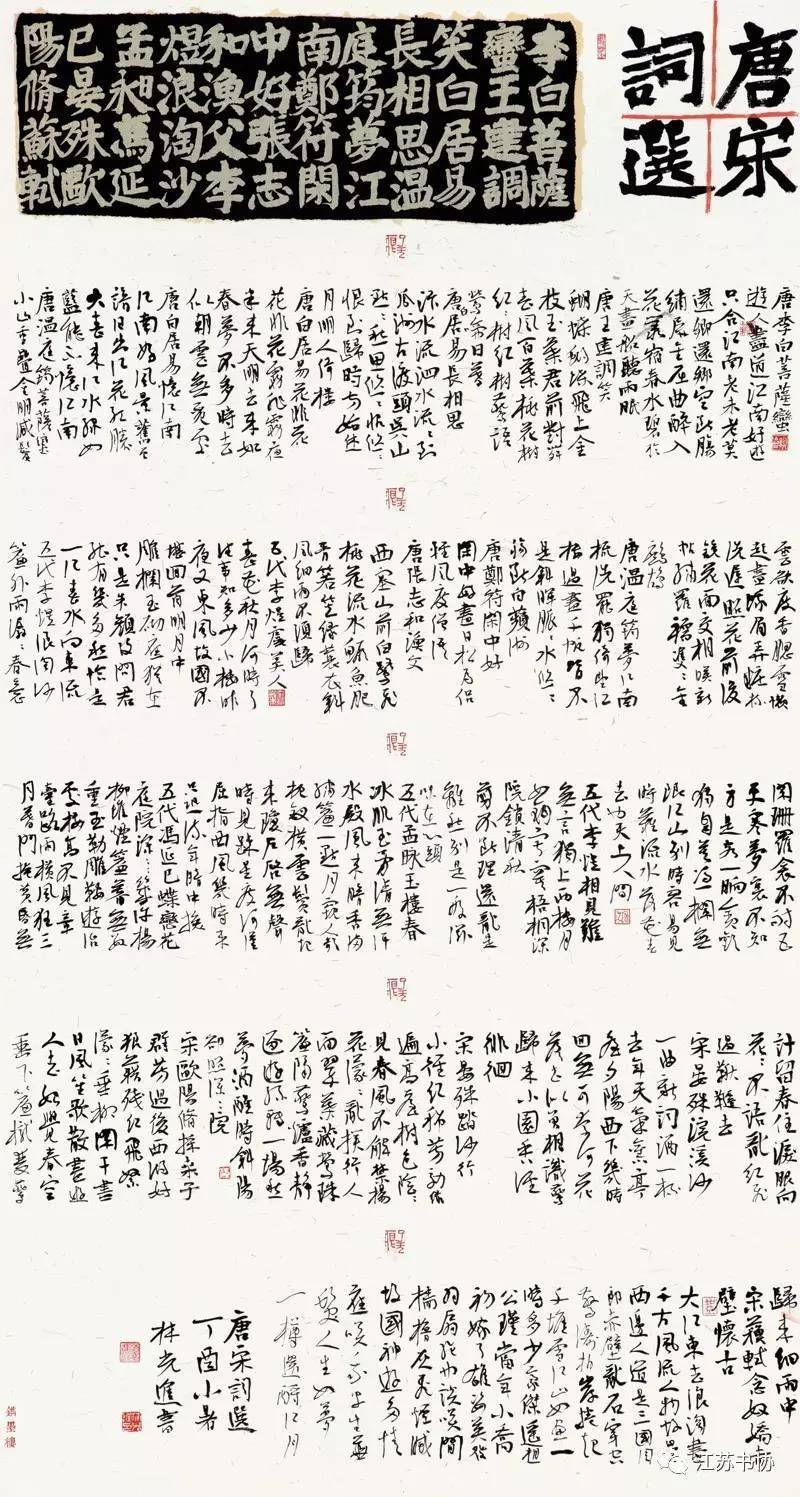 唐宋
詞選
李白菩薩
蠻王建調
笑白居易
長相思溫
庭筠夢江
南鄭符閑
中好張志
和漁父李
煜浪淘沙
孟昶馮延
巳晏殊歐
陽脩蘇軾
唐李白菩薩蠻
遊人盡道江南好遊
只合江南老未老莫
還鄉還鄉空斷腸
繡屏金屈曲醉入
花叢宿春水碧於
天畫船聽雨眠
唐王建調笑
蝴蝶蝴蝶飛上金
枝玉葉君前對舞
春風百葉桃花樹
紅紅樹紅樹燕語
鶯啼日暮
唐白居易長相思
汴水流泗水流流到
瓜洲古渡頭吳山
點點愁思悠悠恨悠悠
恨到歸時方始休
月明人倚樓
唐白居易花非花
花非花霧非霧夜
半來天明去來如
春夢不多時去
似朝雲無覓處
唐白居易憶江南
江南好風景舊曾
諳日出江花紅勝
火春來江水綠如
藍能不憶江南
唐溫庭筠菩薩蠻
小山重疊金明滅鬢
雲欲度香腮雪懶
起畫蛾眉弄妝梳
洗遲照花前後
鏡花面交相映新
帖繡羅襦雙雙金
鷓鴣
唐溫庭筠夢江南
梳洗罷獨倚望江
樓過盡千帆皆不
是斜暉脈脈水悠悠
腸斷白蘋洲
唐鄭符閑中好
閑中好盡日松為侶
輕風度僧語
唐張志和漁父
西塞山前白鷺飛
桃花流水鱖魚肥
青箬笠綠蓑衣斜
風細雨不須歸
五代李煜虞美人
春花秋月何時了
往事知多少小樓昨
夜又東風故國不
堪回首明月中
雕欄玉砌應猶在
只是朱顏改問君
能有幾多愁恰是
一江春水向東流
五代李煜浪淘沙
簾外雨潺潺春意
闌珊羅衾不耐五
更寒夢裏不知
身是客一晌貪歡
獨自莫憑欄無
限江山別時容易見
時難流水落花春
去也天上人間
五代李煜相見歡
無言獨上西樓月
如鉤寂寞梧桐深
院鎖清秋
剪不斷理還亂是
離愁別是一般滋
味在心頭
五代孟昶玉樓春
冰肌玉骨清無汗
水殿風來暗香滿
繡簾一點月窺人欹
枕釵橫雲鬢亂起
來瓊戶啟無聲
時見疏星度河漢
屈指西風幾時來
只恐流年暗中換
五代馮延巳蝶戀花
庭院深深幾許楊
柳堆煙簾幕無
重玉勒雕鞍遊冶
處樓高不見章
臺路雨橫風狂三
月暮門掩黃昏無
計留春住淚眼問
花花不語亂紅飛
過鞦韆去
宋晏殊浣溪沙
一曲新詞酒一杯
去年天氣舊亭
臺夕陽西下幾時
回無可奈何花
落去似曾相識燕
歸來小園香徑
徘徊
宋晏殊踏莎行
小徑紅稀芳郊綠
遍高臺樹色陰陰
見春風不解禁楊
花濛濛亂撲行人
面翠葉藏鶯珠
簾隔燕爐香靜
逐遊絲轉一場愁
夢酒醒時斜陽
卻照深深院
宋歐陽脩採桑子
群芳過後西湖好
狼藉殘紅飛絮
濛濛垂柳闌干盡
日風笙歌散盡遊
人去始覺春空
垂下簾櫳雙燕
歸來細雨中
宋蘇軾念奴嬌赤
壁懷古
大江東去浪淘盡
千古風流人物故壘
西邊人道是三國周
郎赤壁亂石穿空
驚濤拍岸捲起
千堆雪江山如畫一
時多少豪傑遙想
公瑾當年小喬
初嫁了雄姿英發
羽扇綸巾談笑間
檣櫓灰飛煙滅
故國神遊多情
應笑我早生華
髮人生如夢
一樽還酹江月
唐宋詞選
丁酉小暑
林光進書
江苏书协